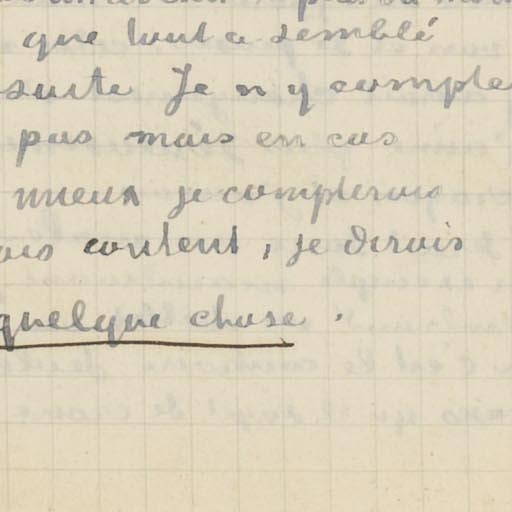 que tout a semblé
suite Je n y compte
pas mais en cas
mieux je compterais
ais content, je dirais
quelque chose.